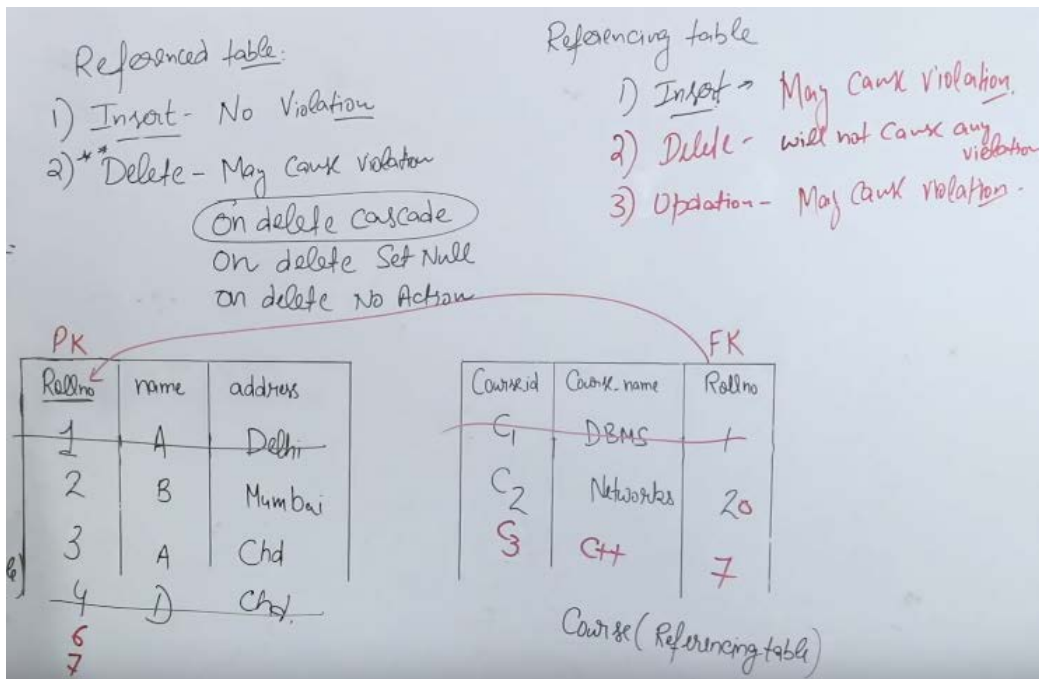 Referenced table:
1) Insert - No Violation
2) ** Delete - May cause violation
on delete cascade
on delete Set Null
on delete No Action
Referencing table
1) Insert → May cause violation.
2) Delete - will not cause any
violation
3) Updation - May cause violation -
PK
Rollno name address
1 A Delhi
2 B Mumbai
3 A Chd
4 D Chd.
6
7
FK
Course.id Course_name Rollno
C1 DBMS 1
C2 Networks 20
C3 C++ 7
Course (Referencing table)